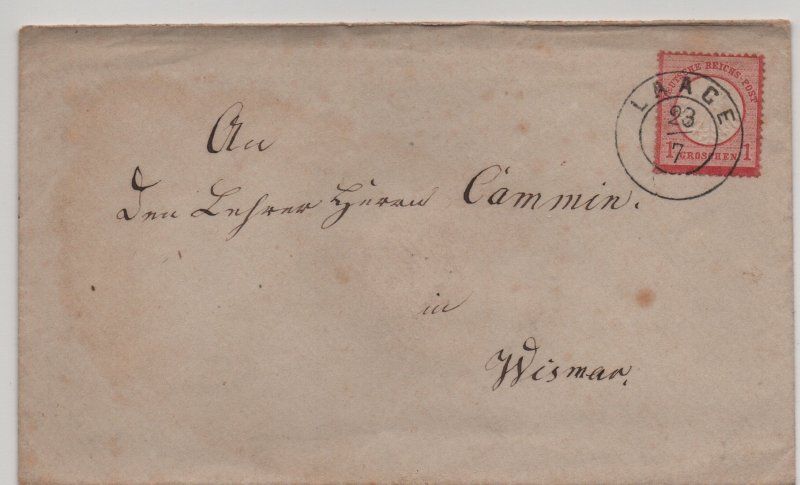 DEUTSCHE REICHS-POST
1 GROSCHEN 1
LAAGE
23
7
An
den Lehrer Herrn Cammin.
in
Wismar.